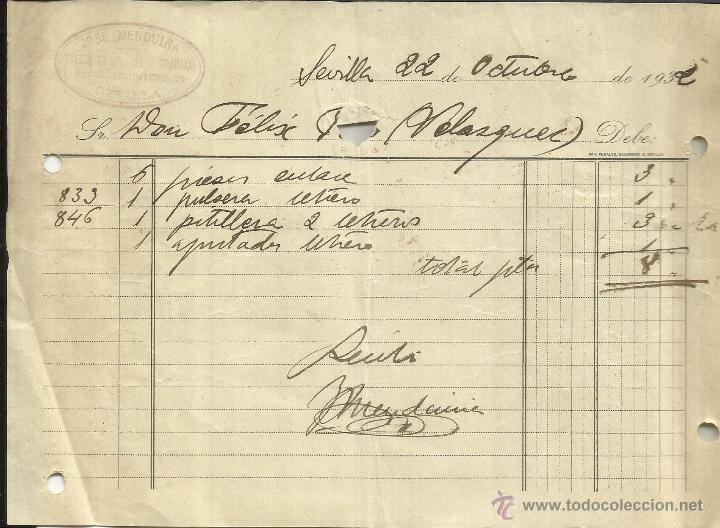 JOSE MENDUIÑA
SEVILLA
Sevilla 22 de Octubre de 1932
Sr. Don Félix (Velasquez) Debe:
6 piesas enlase 3 "
833 1 pulsera letrero 1 "
846 1 pitillera 2 letreros 3 "
1 apuntador letrero 1 "
total ptas 8 "
Recibí
JMenduiña
todocoleccion.net